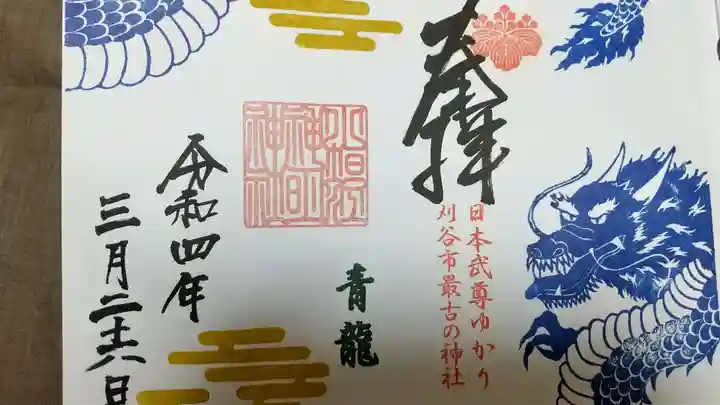 奉拝
日本武尊ゆかり
刈谷市最古の神社
青龍
令和四年
三月二十六日